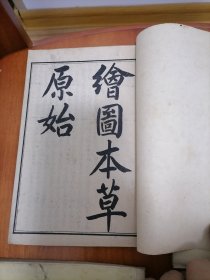 繪圖本草
原始